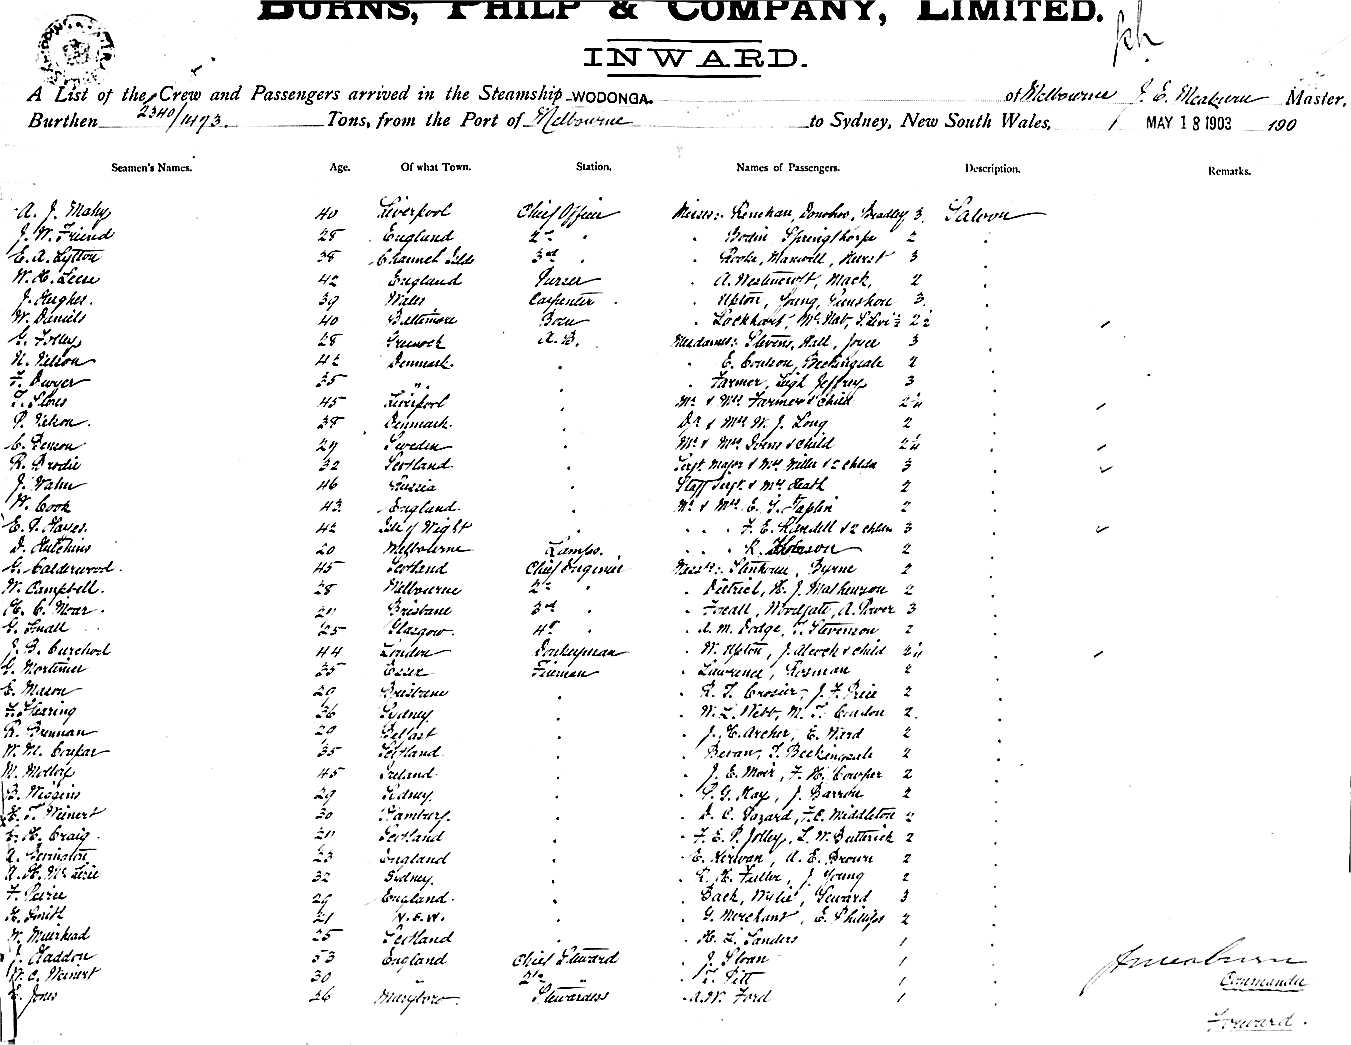 BURNS, PHILP & COMPANY, LIMITED.
INWARD.
A List of the Crew and Passengers arrived in the Steamship WODONGA. of Melbourne J. E. Meaburn Master,
Burthen 2340/1473. Tons, from the Port of Melbourne to Sydney, New South Wales, MAY 18 1903 190
Seamen's Names. Age. Of what Town. Station. Names of Passengers. Description. Remarks.
A. J. Mahy 40 Liverpool Chief Officer Misses: Kenehan, Donohoe, Bradley 3 Saloon
J. W. Friend 28 England 2nd Bodin Springthorpe 2
E. A. Lytton 38 Channel Islds 3rd Cooke, Maxwell, Hurst 3
W. H. Leese 42 England Purser A. Westacott, Mack, 2
J. Hughes. 39 Wales Carpenter Upton, Young, 3
W. Daniels 40 Baltimore Bosn Lockhart, McNab, 2½
G. Folley 28 Greenock A.B. Mesdames: Stevens, Hall, Joyce 3
N. Nelson 42 Denmark. E. Coulson, Beckingsale 2
F. Dwyer 35 " Farmer, Leigh Jeffrey 3
T. 45 Liverpool Mr & Mrs Farmer & child 2½
P. Nelson. 38 Denmark. Dr & Mrs W. J. Long 2
C. Benson 27 Sweden Mr & Mrs Ivens & child 2½
R. Brodie 32 Scotland Sergt Major & Mrs Miller & 2 childn 3
J. 46 Russia Staff Sergt & Mrs Heath 2
W. Cook 43 England. Mr & Mrs E. T. Taplin 2
E. J. Hayes. 42 Isle of Wight F. E. Randell & 2 childn 3
D. Hutchins 20 Melbourne Lamps. R. Hobson 2
G. Calderwood. 45 Scotland Chief Engineer Messrs: , Byrne 2
W. Campbell. 28 Melbourne 2nd Dietrich, H. J. Matheson 2
H. C. Moar. 24 Brisbane 3rd Foxall, Woodgate, A. Power 3
G. Small 25 Glasgow. 4th A. M. Dodge, T. Stevenson 2
J. B. Curchod 44 London Donkeyman W. Upton, J. Alcock & child 2½
G. Mortimer 35 Essex Fireman Lawrence, Rosman 2
E. Mason 20 Brisbane R. T. Crosier, J. F. Price 2
F. Herring 36 Sydney W. L. Webb, M. T. 2
R. Brennan 20 Belfast J. H. Archer, E. Ward 2
W. M. Coupar 35 Scotland Bevan, T. Beckingsale 2
M. Molloy 45 Ireland J. E. Moir, F. H. Cowper 2
B. Wiggins 29 Sydney P. G. Kay, J. Barron 2
H. T. Weinert 30 Hamburg. D. C. Pozard, F. C. Middleton 2
H. Craig. 24 Scotland F. E. P. Jolley, L. W. Butterick 2
A. Levingston 23 England E. Kerwan, A. E. Brown 2
A. H. McLexie 32 Sydney. R. H. Fuller, J. Young 2
F. Peirce 29 England. Back, Wylie, Seward 3
H. Smith 21 N.S.W. G. Merchant, E. Phillips 2
W. Muirhead 25 Scotland H. L. Sanders 1
J. Haddon 53 England Chief Steward J. Sloan 1
W. C. Weinert 30 " 2nd T. Pitt 1
E. Jones 26 Maryboro. Stewardess A. W. Ford 1
J E Meaburn
Commander
Forward.